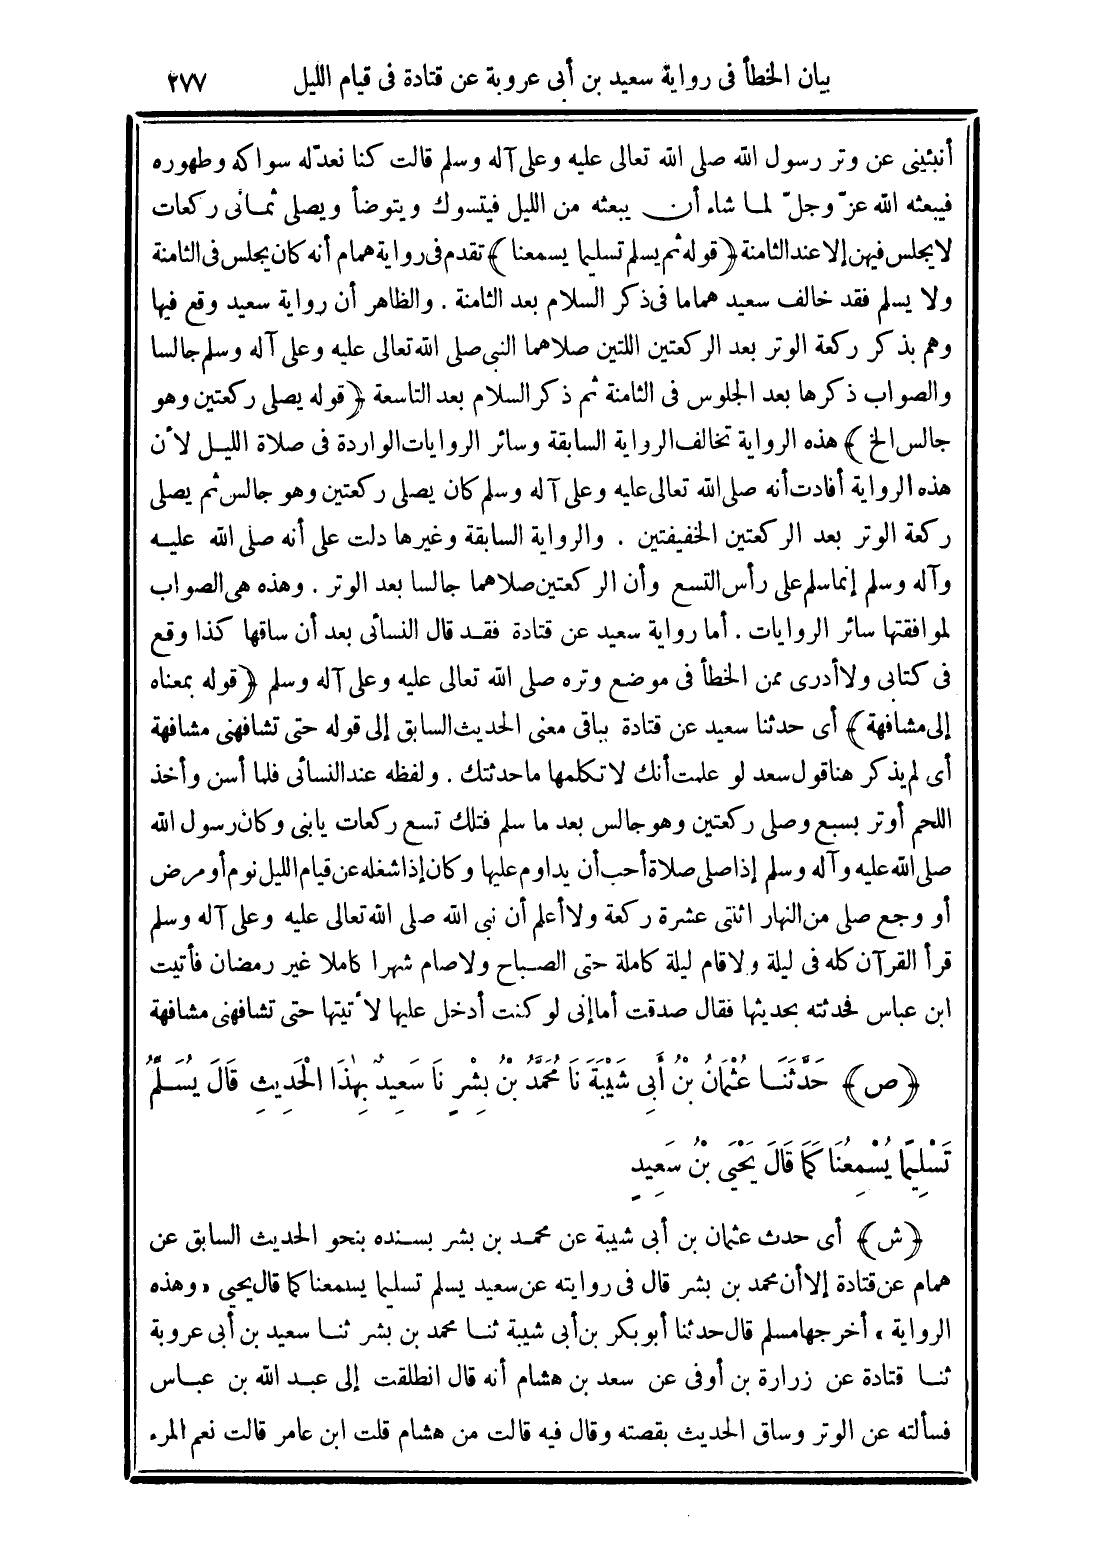 بيان الخطأ فى رواية سعيد بن أبى عروبة عن قتادة فى قيام الليل ٢٧٧
أنبئينى عن وتر رسول الله صلى الله تعالى عليه وعلى آله وسلم قالت كنا نعدّ له سواكه وطهوره
فيبعثه الله عزّ وجلّ لما شاء أن يبعثه من الليل فيتسوك ويتوضأ ويصلى ثمانى ركعات
لا يجلس فيهن إلا عند الثامنة ﴿قوله ثم يسلم تسليما يسمعنا﴾ تقدم فى رواية همام أنه كان يجلس فى الثامنة
ولا يسلم فقد خالف سعيد هماما فى ذكر السلام بعد الثامنة . والظاهر أن رواية سعيد وقع فيها
وهم بذكر ركعة الوتر بعد الركعتين اللتين صلاهما النبى صلى الله تعالى عليه وعلى آله وسلم جالسا
والصواب ذكرها بعد الجلوس فى الثامنة ثم ذكر السلام بعد التاسعة ﴿قوله يصلى ركعتين وهو
جالس الخ﴾ هذه الرواية تخالف الرواية السابقة وسائر الروايات الواردة فى صلاة الليل لأن
هذه الرواية أفادت أنه صلى الله تعالى عليه وعلى آله وسلم كان يصلى ركعتين وهو جالس ثم يصلى
ركعة الوتر بعد الركعتين الخفيفتين . والرواية السابقة وغيرها دلت على أنه صلى الله عليه
وآله وسلم إنما سلم على رأس التسع وأن الركعتين صلاهما جالسا بعد الوتر . وهذه هى الصواب
لموافقتها سائر الروايات . أما رواية سعيد عن قتادة فقد قال النسائى بعد أن ساقها كذا وقع
فى كتابى ولا أدرى ممن الخطأ فى موضع وتره صلى الله تعالى عليه وعلى آله وسلم ﴿قوله بمعناه
إلى مشافهة﴾ أى حدثنا سعيد عن قتادة بباقى معنى الحديث السابق إلى قوله حتى تشافهنى مشافهة
أى لم يذكر هنا قول سعد لو علمت أنك لا تكلمها ما حدثتك . ولفظه عند النسائى فلما أسن وأخذ
اللحم أوتر بسبع وصلى ركعتين وهو جالس بعد ما سلم فتلك تسع ركعات يا بنى وكان رسول الله
صلى الله عليه وآله وسلم إذا صلى صلاة أحب أن يداوم عليها وكان إذا شغله عن قيام الليل نوم أو مرض
أو وجع صلى من النهار اثنتى عشرة ركعة ولا أعلم أن نبى الله صلى الله تعالى عليه وعلى آله وسلم
قرأ القرآن كله فى ليلة ولا قام ليلة كاملة حتى الصباح ولا صام شهرا كاملا غير رمضان فأتيت
ابن عباس فحدثته بحديثها فقال صدقت أما إنى لو كنت أدخل عليها لأتيتها حتى تشافهنى مشافهة
﴿ص﴾ حَدَّثَنَا عُثْمَانُ بْنُ أَبِى شَيْبَةَ نَا مُحَمَّدُ بْنُ بِشْرٍ نَا سَعِيدٌ بِهٰذَا الْحَدِيثِ قَالَ يُسَلِّمُ
تَسْلِيمًا يُسْمِعُنَا كَمَا قَالَ يَحْيَى بْنُ سَعِيدٍ
﴿ش﴾ أى حدث عثمان بن أبى شيبة عن محمد بن بشر بسنده بنحو الحديث السابق عن
همام عن قتادة إلا أن محمد بن بشر قال فى روايته عن سعيد يسلم تسليما يسمعنا كما قال يحيى ، وهذه
الرواية ، أخرجها مسلم قال حدثنا أبو بكر بن أبى شيبة ثنا محمد بن بشر ثنا سعيد بن أبى عروبة
ثنا قتادة عن زرارة بن أوفى عن سعد بن هشام أنه قال انطلقت إلى عبد الله بن عباس
فسألته عن الوتر وساق الحديث بقصته وقال فيه قالت من هشام قلت ابن عامر قالت نعم المرء